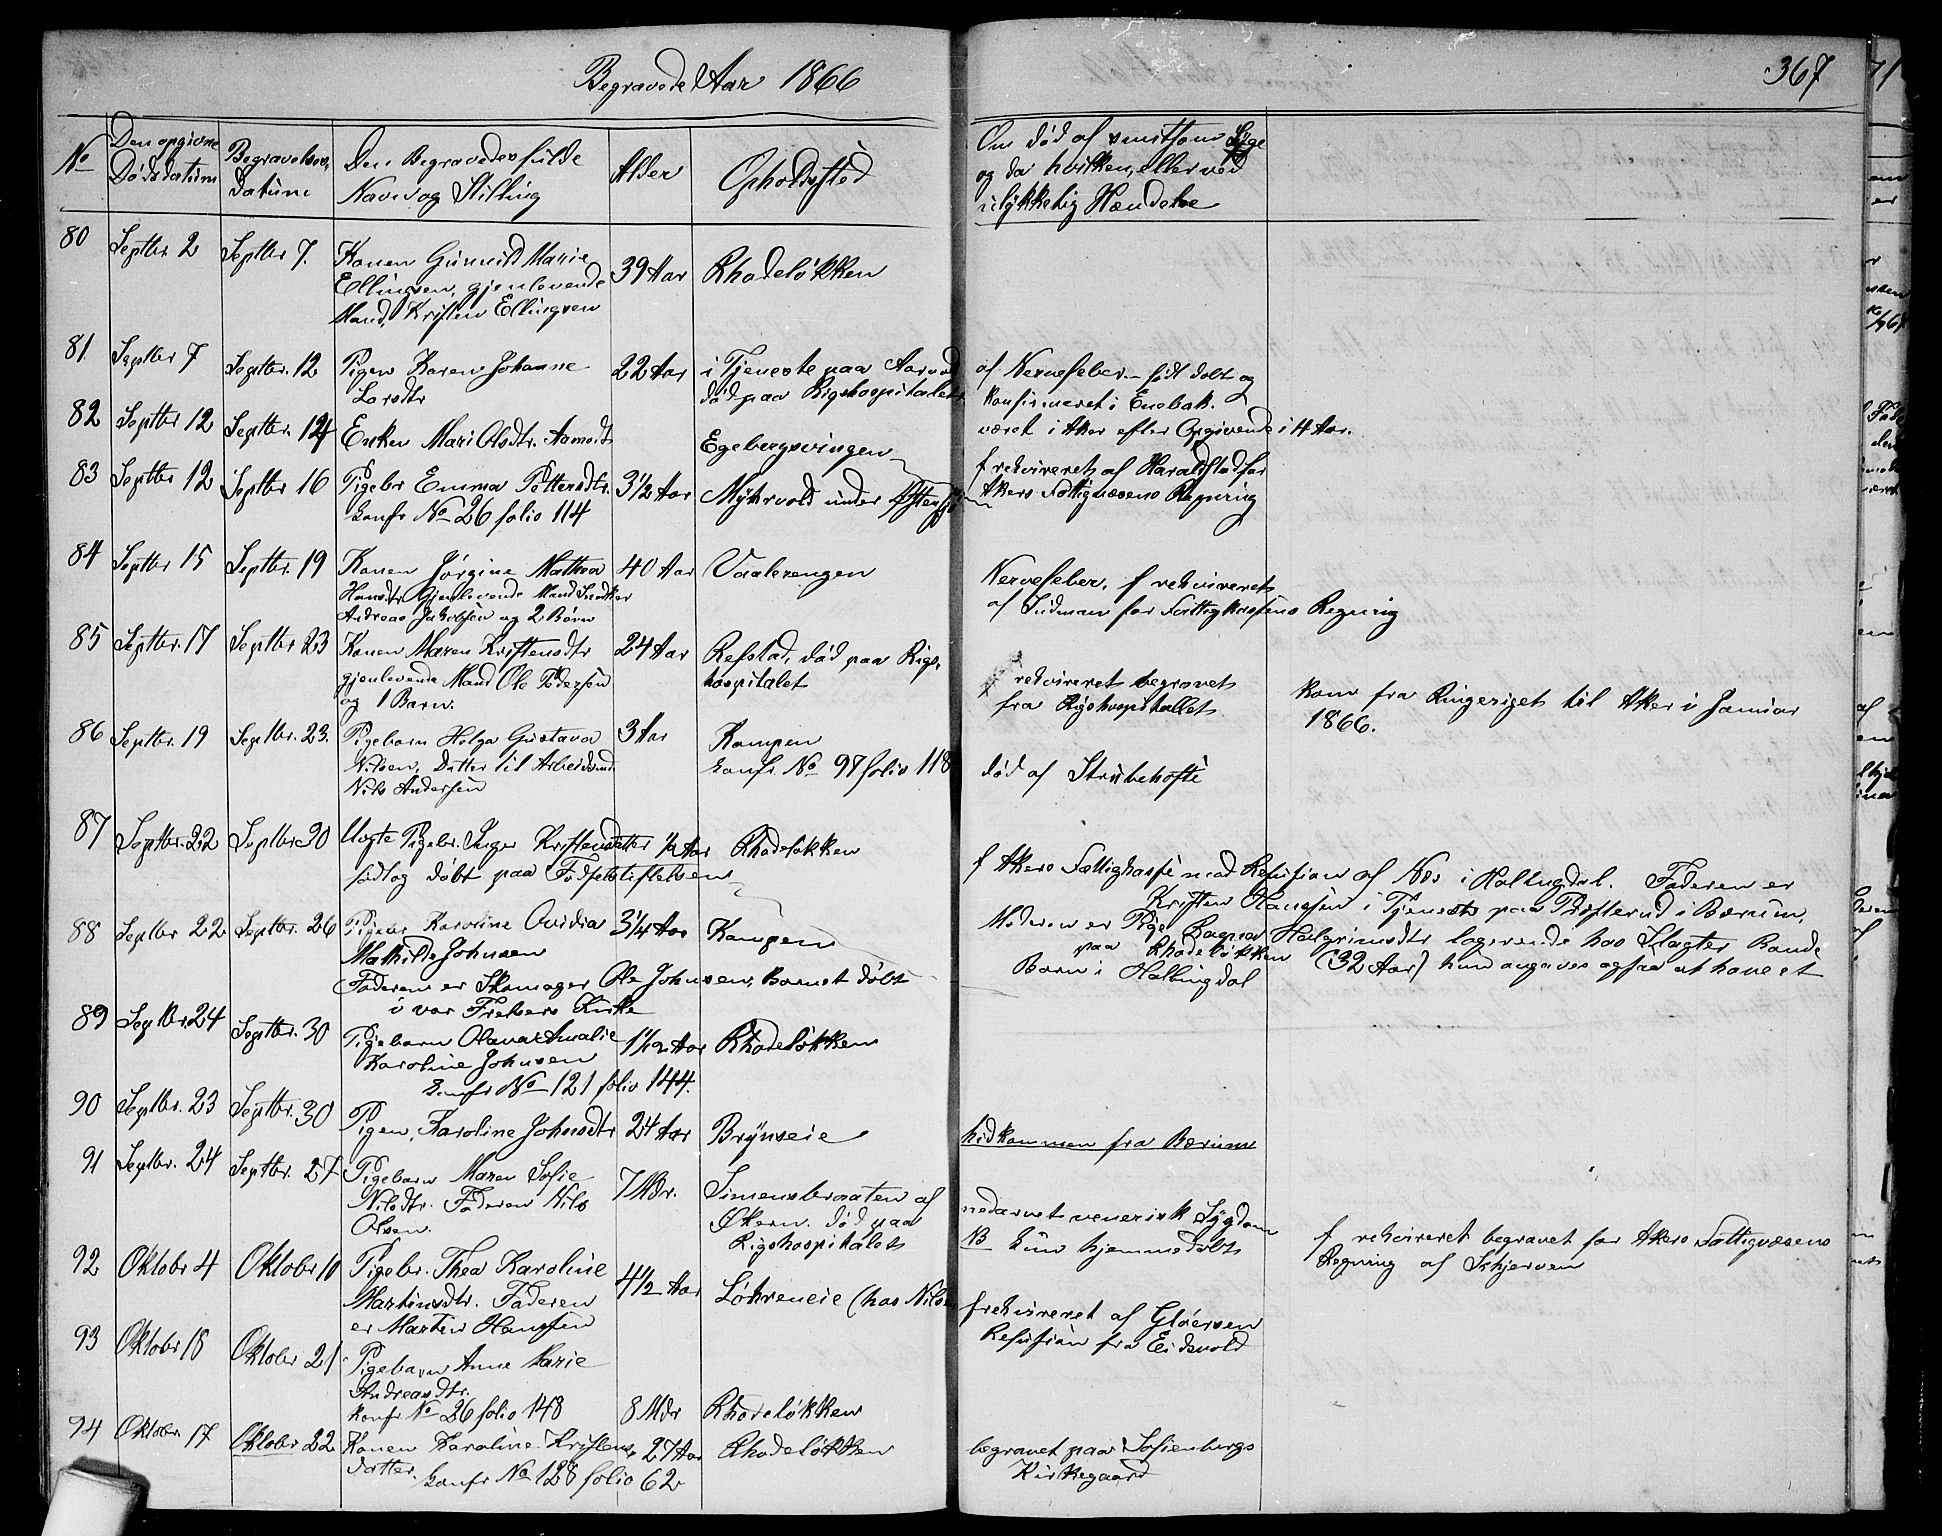 Begravede Aar 1866
367
No
Den opgivne
Dødsdatum
Begravelses-
datum
Den Begravedes fulde
Navn og Stilling
Alder
Opholdssted
Om død af smitsom Syge
og da hvilken, eller ved
ulykkelig Hændelse
80
Septbr. 2
Septbr 7.
Konen Gunnild Marie
Ellingsen, gjenlevende
Mand, Kristen Ellingsen
39 Aar
Rhodeløkken
81.
Septbr 7
Septbr. 12
Pigen Karen Johanne
Larsdtr
22 Aar
i Tjeneste paa
død paa Rigshospitalet
af Nervefeber. født døbt og
konfirmeret i Enebak.
været i Aker efter Opgivende i 4 Aar.
82
Septbr 12
Septbr. 14
Enken Mari Olsdtr.
Egebergsvingen
83
Septbr 12
Septbr 16
Pigebr Emma Pettersdtr.
konfr No 26 folio 114
3 1/2 Aar
Myhrvold under Østensjø
f rekvireret af Haraldstad for
Akers Fattigvæsens Regning
84
Septbr 15
Septbr. 19
Konen Jørgine Mathea
Hansdtr Gjenlevende Mand Snedker
Andreas Jakobsen og 2 Børn
40 Aar
Vaalerengen
Nervefeber. f rekvireret
af Sidman for Fattigkassens Regning
85
Septbr. 17
Septbr 23
Konen Maren Kristensdtr
gjenlevende Mand Ole Pedersen
og 1 Barn.
24 Aar
Refstad, død paa Rigs-
hospitalet
rekvireret begravet
fra Rigshospitallet
kom fra Ringeriget til Aker i Januar
1866.
86
Septbr. 19
Septbr. 23.
Pigebarn Helga Gustava
Nilsen, Datter til Arbeidsmd
Nils Andersen
3 Aar
Kampen
konfr No 97 folio 118
død af Strubehoste
87
Septbr. 22
Septbr 30
Uægte Pigebr. Inger Kristensdatter
født og døbt paa Fødselsstiftelsen
1/2 Aar
Rhodeløkken
f Akers Fattigkasse mod Refusion af Næs i Hallingdal. Faderen er
Kristen Hanssen i Tjeneste paa Presterud i Bærum,
Moderen er Pige Ragna Halgrimsdtr logerende hos Slagter Bonde
paa Rhodeløkken (32 Aar) hun angives ogsaa at have et
Barn i Hallingdal
88
Septbr 22
Septbr. 26
Pigebr Karoline Ovidia
Mathilde Johnsen
Faderen er Skomager Ole Johnsen, Barnet døbt
i vor Frelsers Kirke
3 1/4 Aar
Kampen
89
Septbr. 24
Septbr. 30
Pigebarn Olava Amalie
Karoline Johnsen
konfr No 121 folio 144.
1 1/12 Aar
Rhodeløkken
90
Septbr. 23
Septbr. 30
Pigen, Karoline Johnsdtr
24 Aar
Brynseie
hidkommen fra Bærum
91
Septbr. 24
Septbr. 27
Pigebarn Maren Sofie
Nilsdtr. Faderen Nils
Olsen.
7 Mdr.
Simensbraaten af
Økern. død paa
Rigshospitalet
nedarvet venerisk Sygdom
NB kun hjemmedøbt
f rekvireret begravet for Akers Fattigvæsens
Regning af Schjerven
92
Oktober 4
Oktober 10
Pigebr. Thea Karoline
Martinsdtr. Faderen
er Martin Hanssen
4 1/2 Aar
Løhreneie (hos Nilsen
f rekvireret af Gløersen
Refusion fra Eidsvold
93
Oktober 18
Oktober 21
Pigebarn Anne Marie
Andreasdtr.
konfr No 26 folio 148
8 Mdr
Rhodeløkken
94
Oktober 17
Oktober 22
Konen Karoline Kristens-
datter.
konfr No 128 folio 62
27 Aar
Rhodeløkken
begravet paa Sofienbergs
Kirkegaard